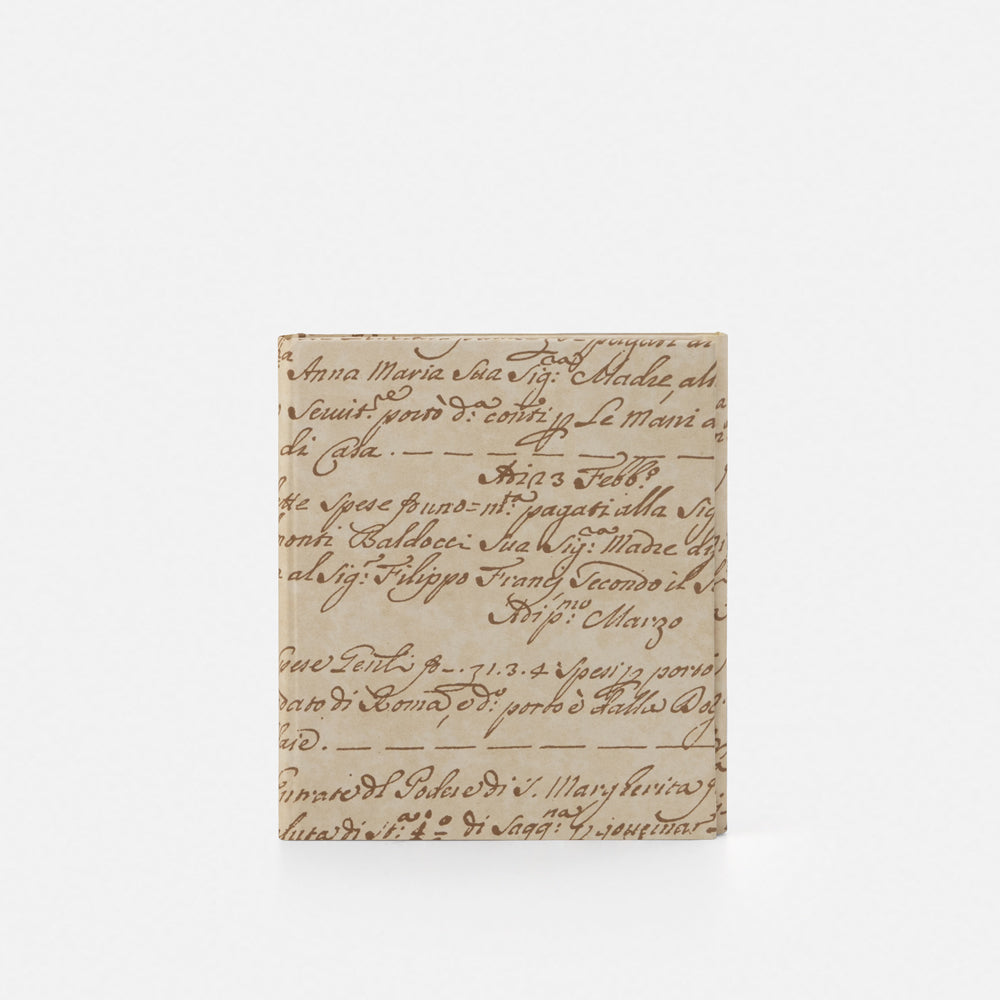 pagati al
Anna Maria Sua Sig:ra Madre, als
Seruit:re portò d:a conti p Le Mani a
di Casa . — — — — — — — — — — —
Adi 23 Febb:o
ette Spese f uno = m:ta pagati alla Sig
monti Baldocci Sua Sig:ra Madre di
al Sig:r Filippo Franc Secondo il S
Adi p:mo Marzo
Spese f — . 31.3.4 : Spesi p porto
dato di Roma, e d:o porto è dalla Dog
laie . — — — — — — —
Entrate dl Podere di S. Margherita
di st:a 4 di Sagg:na